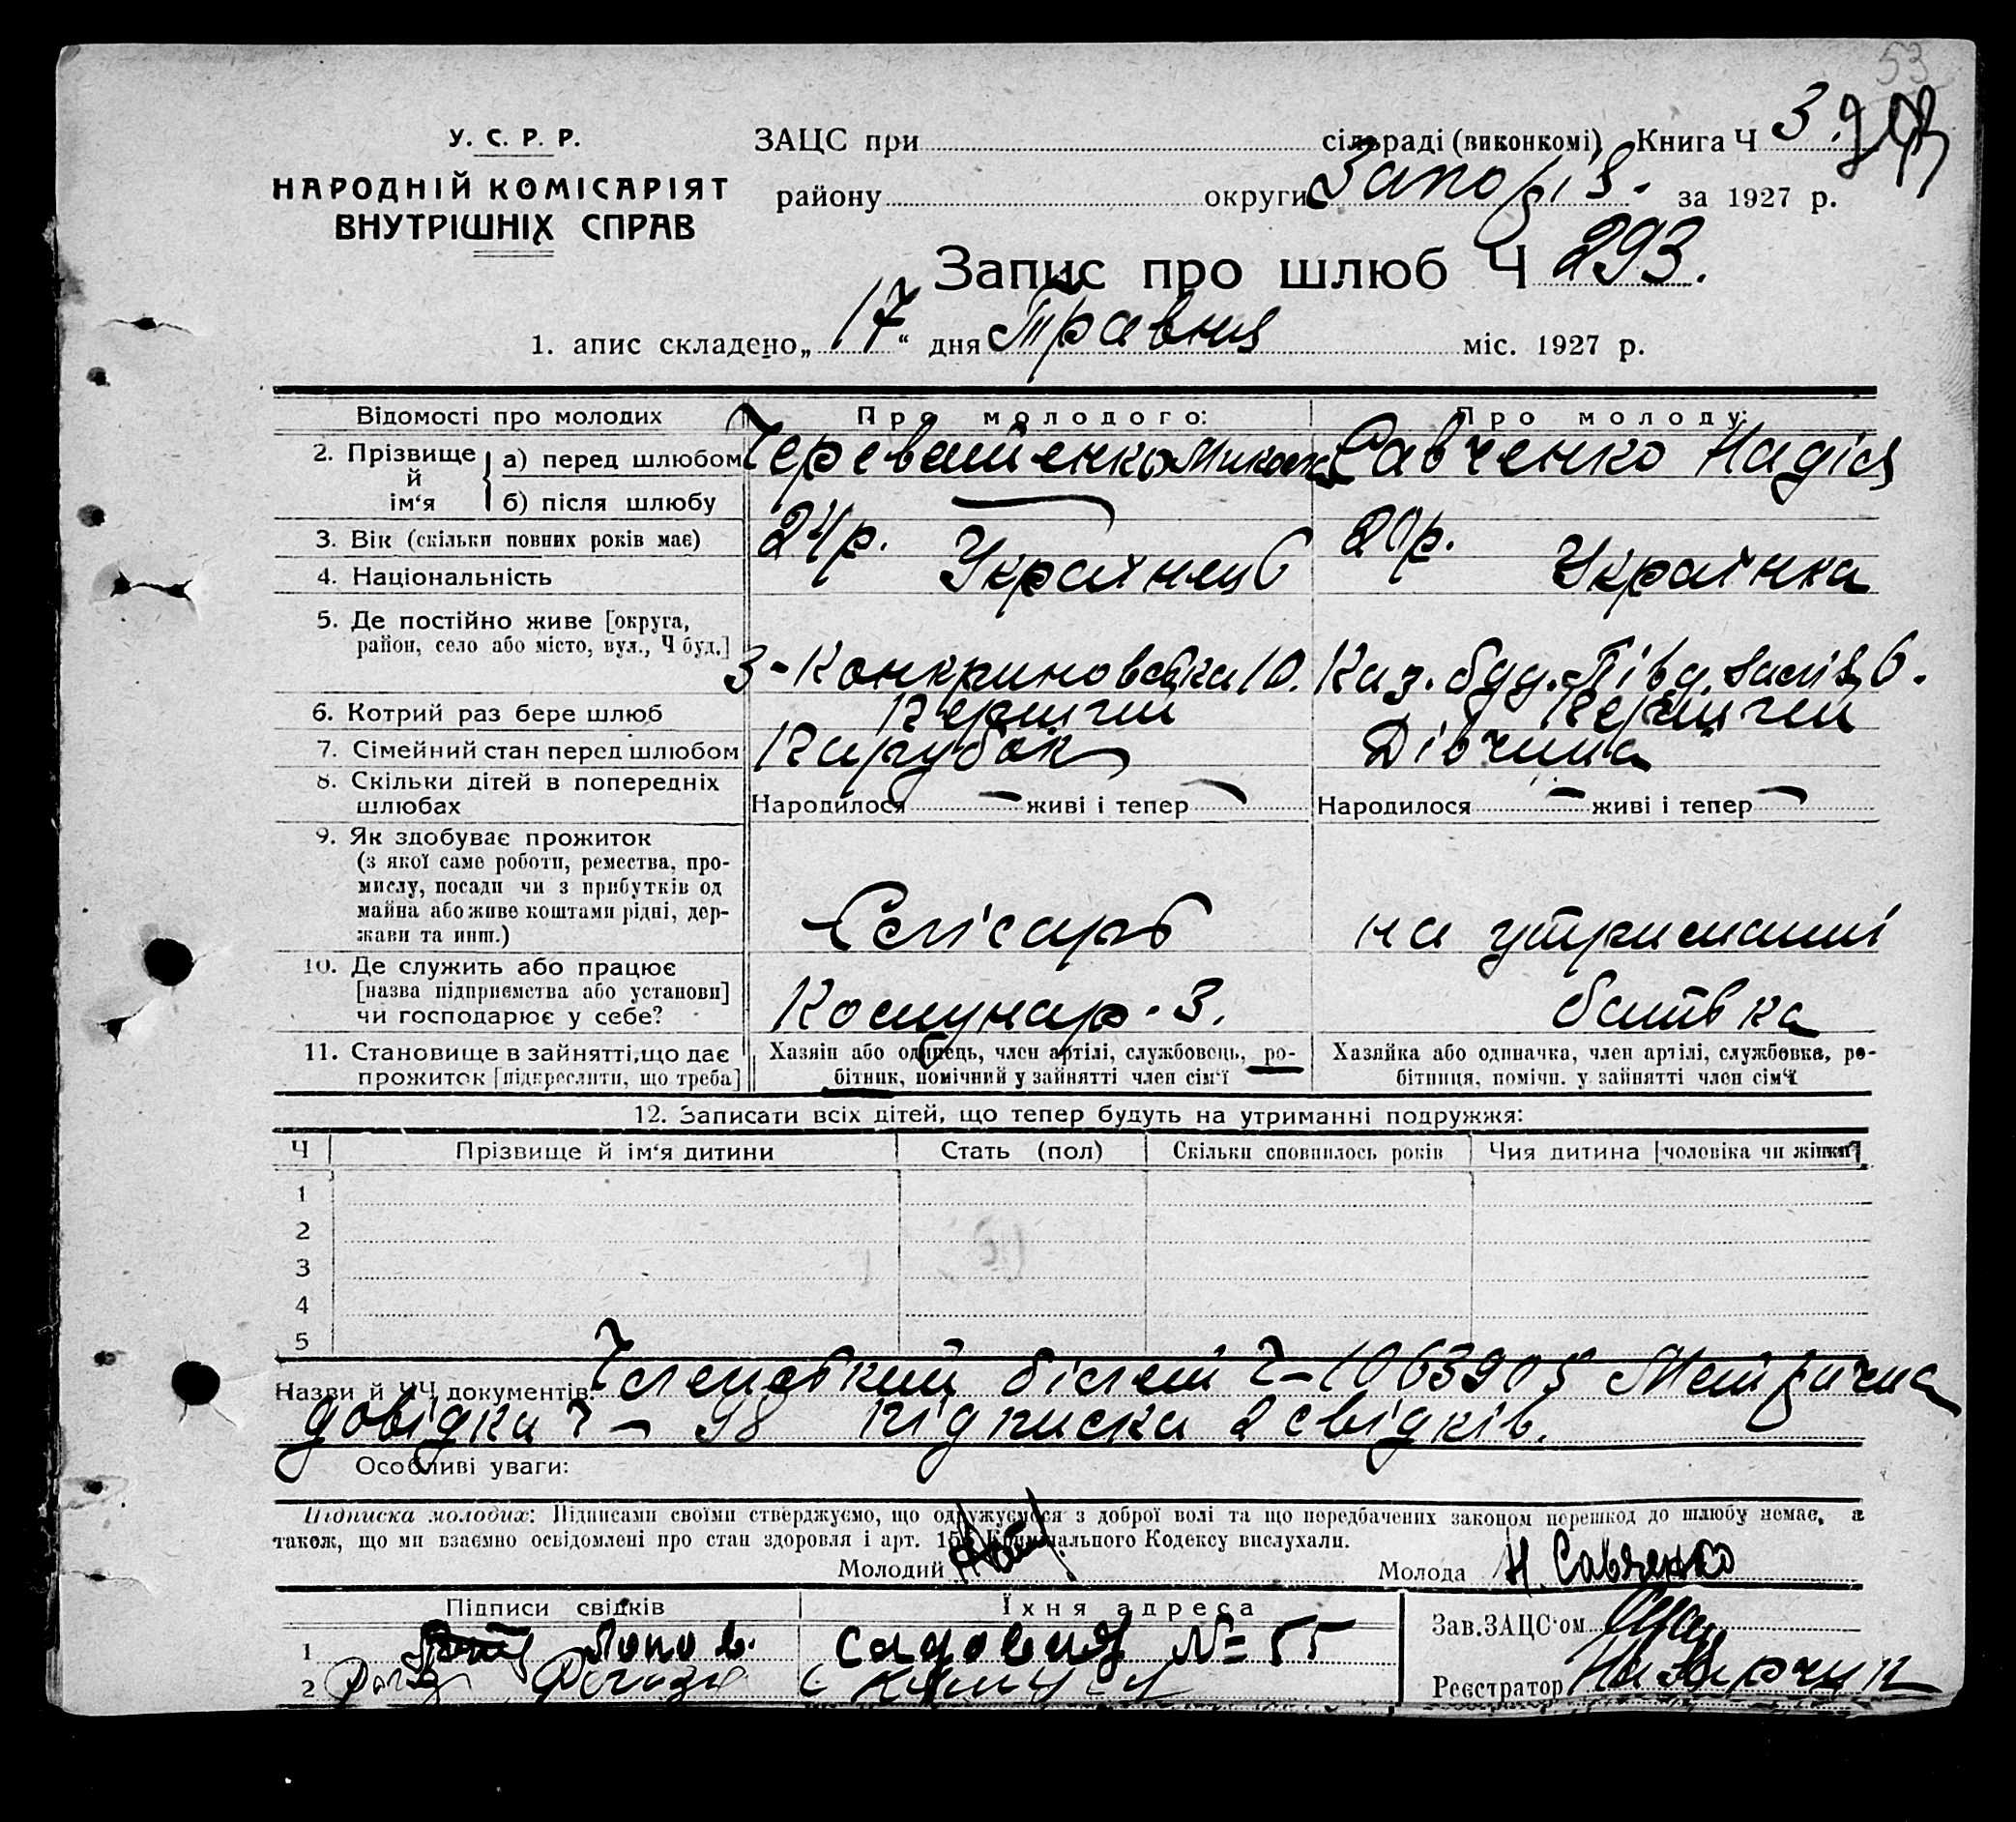 53
У. С. Р. Р.
НАРОДНІЙ КОМІСАРІЯТ
ВНУТРІШНІХ СПРАВ
ЗАЦС при сільраді (виконкомі) Книга Ч 3.
району округи Запоріз. за 1927 р.
Запис про шлюб Ч 293.
1. апис складено „17“ дня Травня міс. 1927 р.
Відомості про молодих Про молодого: Про молоду:
2. Прізвище й ім‘я а) перед шлюбом Савченко Надія
б) після шлюбу
3. Вік (скільки повних років має) 24р. 20р.
4. Національність Українець Українка
5. Де постійно живе [округа,
район, село або місто, вул., Ч буд.] 10. Каз. буд. Півд. заліз. 6.
6. Котрий раз бере шлюб Перший Перший
7. Сімейний стан перед шлюбом Парубок Дівчина
8. Скільки дітей в попередніх
шлюбах Народилося — живі і тепер — Народилося — живі і тепер —
9. Як здобуває прожиток
(з якої саме роботи, ремества, про-
мислу, посади чи з прибутків од
майна або живе коштами рідні, дер-
жави та инш.) Слісарь на утриманні
10. Де служить або працює
[назва підприємства або установи]
чи господарює у себе? Комунар. З. батька
11. Становище в зайнятті, що дає
прожиток [підкреслити, що треба]
Хазяїн або одинець, член артілі, службовець, ро-
бітник, помічний у зайнятті член сім‘ї
Хазяйка або одиначка, член артілі, службовка, ро-
бітниця, помічн. у зайнятті член сім‘ї
12. Записати всіх дітей, що тепер будуть на утриманні подружжя:
Ч Прізвище й ім‘я дитини Стать (пол) Скільки сповнилось років Чия дитина [чоловіка чи жінки]
1
2
3
4
5
Назви й ЧЧ документів: Членський білет Ч–1063905 Метрична
довідка Ч – 98 підписка 2 свідків.
Особливі уваги:
Підписка молодих: Підписами своїми стверджуємо, що одружуємося з доброї волі та що передбачених законом перешкод до шлюбу немає, а
також, що ми взаємно освідомлені про стан здоровля і арт. 155 Кримінального Кодексу вислухали.
Молодий Молода Н. Савченко
Підписи свідків Їхня адреса Зав. ЗАЦС‘ом
1 Попов. Садовая № 55
2 Реєстратор